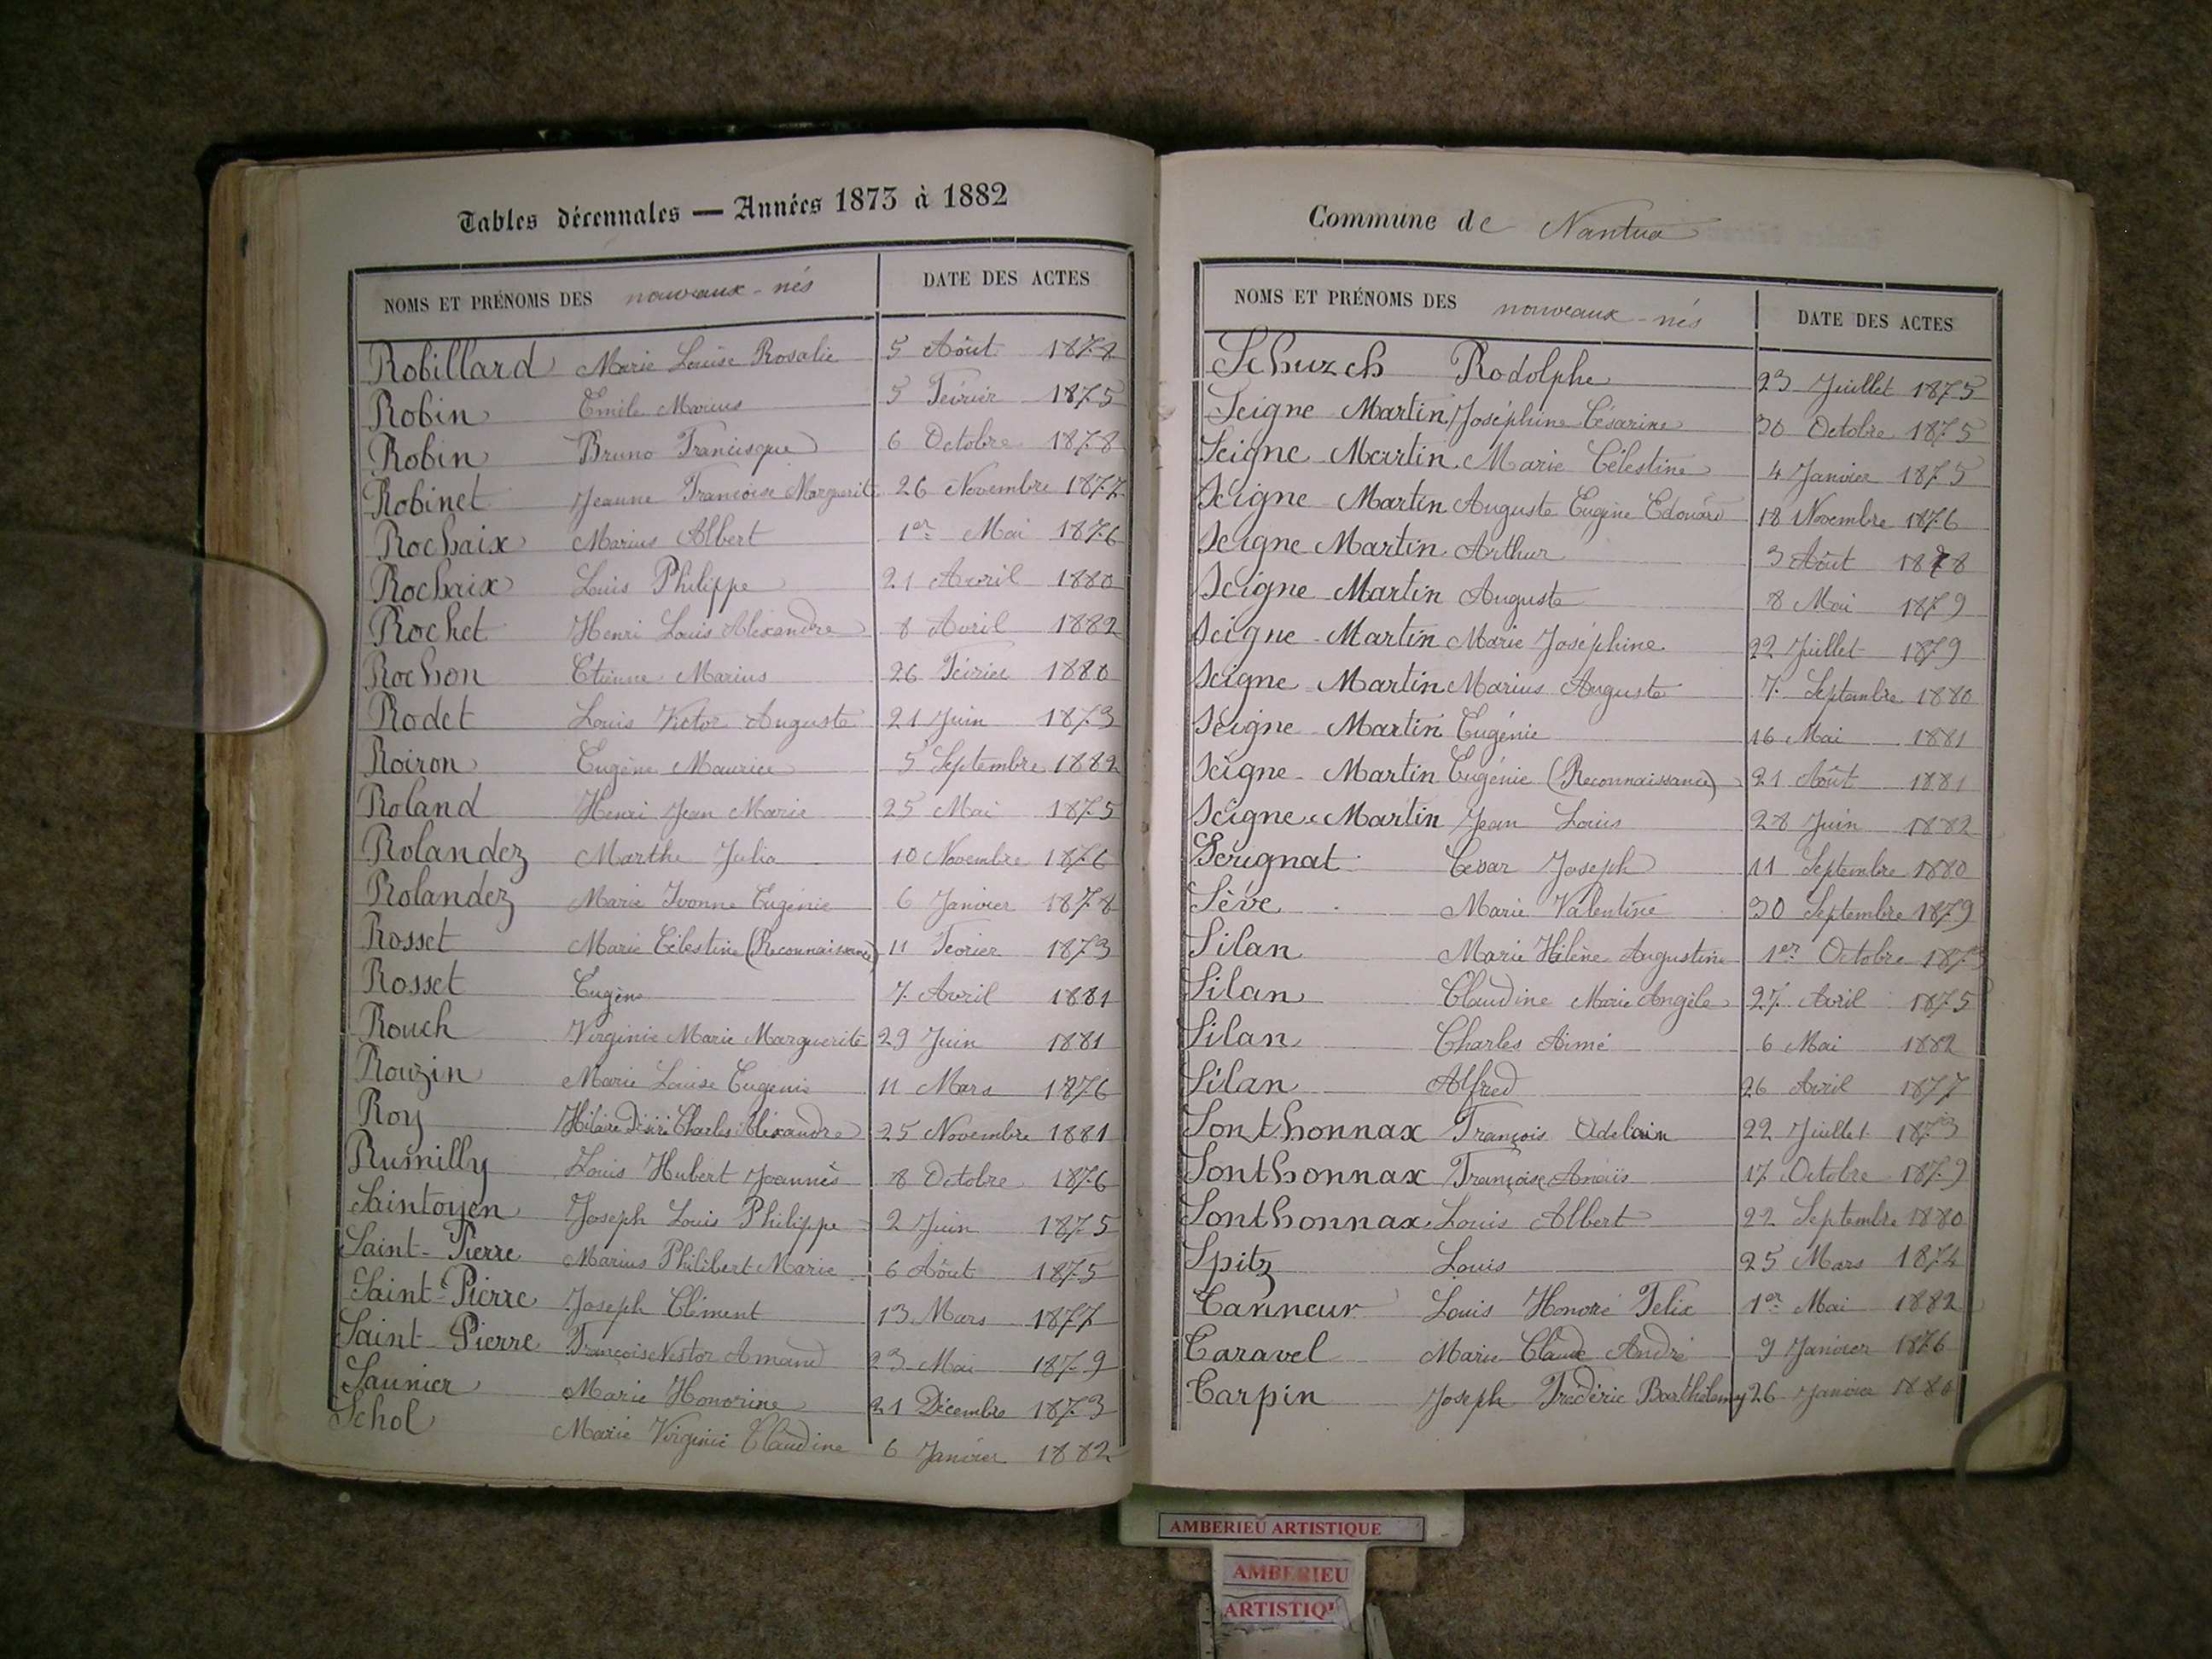 Tables décennales — Années 1873 à 1882
NOMS ET PRÉNOMS DES nouveaux-nés DATE DES ACTES
Robillard Marie Louise Rosalie 5 Août 1878
Robin Emile Marius 5 Février 1875
Robin Bruno Francisque 6 Octobre 1878
Robinet Jeanne Françoise Marguerite 26 Novembre 1877
Rochaix Marius Albert 1er Mai 1876
Rochaix Louis Philippe 21 Avril 1880
Rochet Henri Louis Alexandre 8 Avril 1882
Rochon Etienne Marius 26 Février 1880
Rodet Louis Victor Auguste 21 Juin 1873
Roiron Eugène Maurice 5 Septembre 1882
Roland Henri Jean Marie 25 Mai 1875
Rolandez Marthe Julia 10 Novembre 1876
Rolandez Marie Ivonne Eugénie 6 Janvier 1878
Rosset Marie Célestine (Reconnaissance) 11 Février 1873
Rosset Eugène 7 Avril 1881
Rouch Virginie Marie Marguerite 29 Juin 1881
Rouzin Marie Louise Eugenie 11 Mars 1876
Roy Hilaire Désiré Charles Alexandre 25 Novembre 1881
Rumilly Louis Hubert Joannès 8 Octobre 1876
Saintoyen Joseph Louis Philippe 2 Juin 1875
Saint-Pierre Marius Philibert Marie 6 Août 1875
Saint-Pierre Joseph Clément 13 Mars 1877
Saint-Pierre François Nestor Amand 23 Mai 1879
Saunier Marie Honorine 21 Décembre 1873
Schol Marie Virginie Claudine 6 Janvier 1882
Commune de Nantua
NOMS ET PRÉNOMS DES nouveaux-nés DATE DES ACTES
Schuzch Rodolphe 23 Juillet 1875
Seigne Martin Joséphine Césarine 30 Octobre 1875
Seigne Martin Marie Célestine 4 Janvier 1875
Seigne Martin Auguste Eugène Edouard 18 Novembre 1876
Seigne Martin Arthur 3 Août 1878
Seigne Martin Auguste 8 Mai 1879
Seigne-Martin Marie Joséphine 22 Juillet 1879
Seigne Martin Marius Auguste 7 Septembre 1880
Seigne Martin Eugénie 16 Mai 1881
Seigne-Martin Eugénie (Reconnaissance) 21 Août 1881
Seigne-Martin Jean Louis 28 Juin 1882
Serignat César Joseph 11 Septembre 1880
Sève Marie Valentine 30 Septembre 1879
Silan Marie Hélène Augustine 1er Octobre 1873
Silan Claudine Marie Angèle 27 Avril 1875
Silan Charles Aimé 6 Mai 1882
Silan Alfred 26 Avril 1877
Sonthonnax François Adelain 22 Juillet 1873
Sonthonnax Françoise Anaïs 17 Octobre 1879
Sonthonnax Louis Albert 22 Septembre 1880
Spitz Louis 25 Mars 1874
Tanneur Louis Honoré Felix 1er Mai 1882
Taravel Marie Claude André 9 Janvier 1876
Tarpin Joseph Frédéric Barthélemy 26 Janvier 1880
AMBERIEU ARTISTIQUE
AMBERIEU
ARTISTIQU